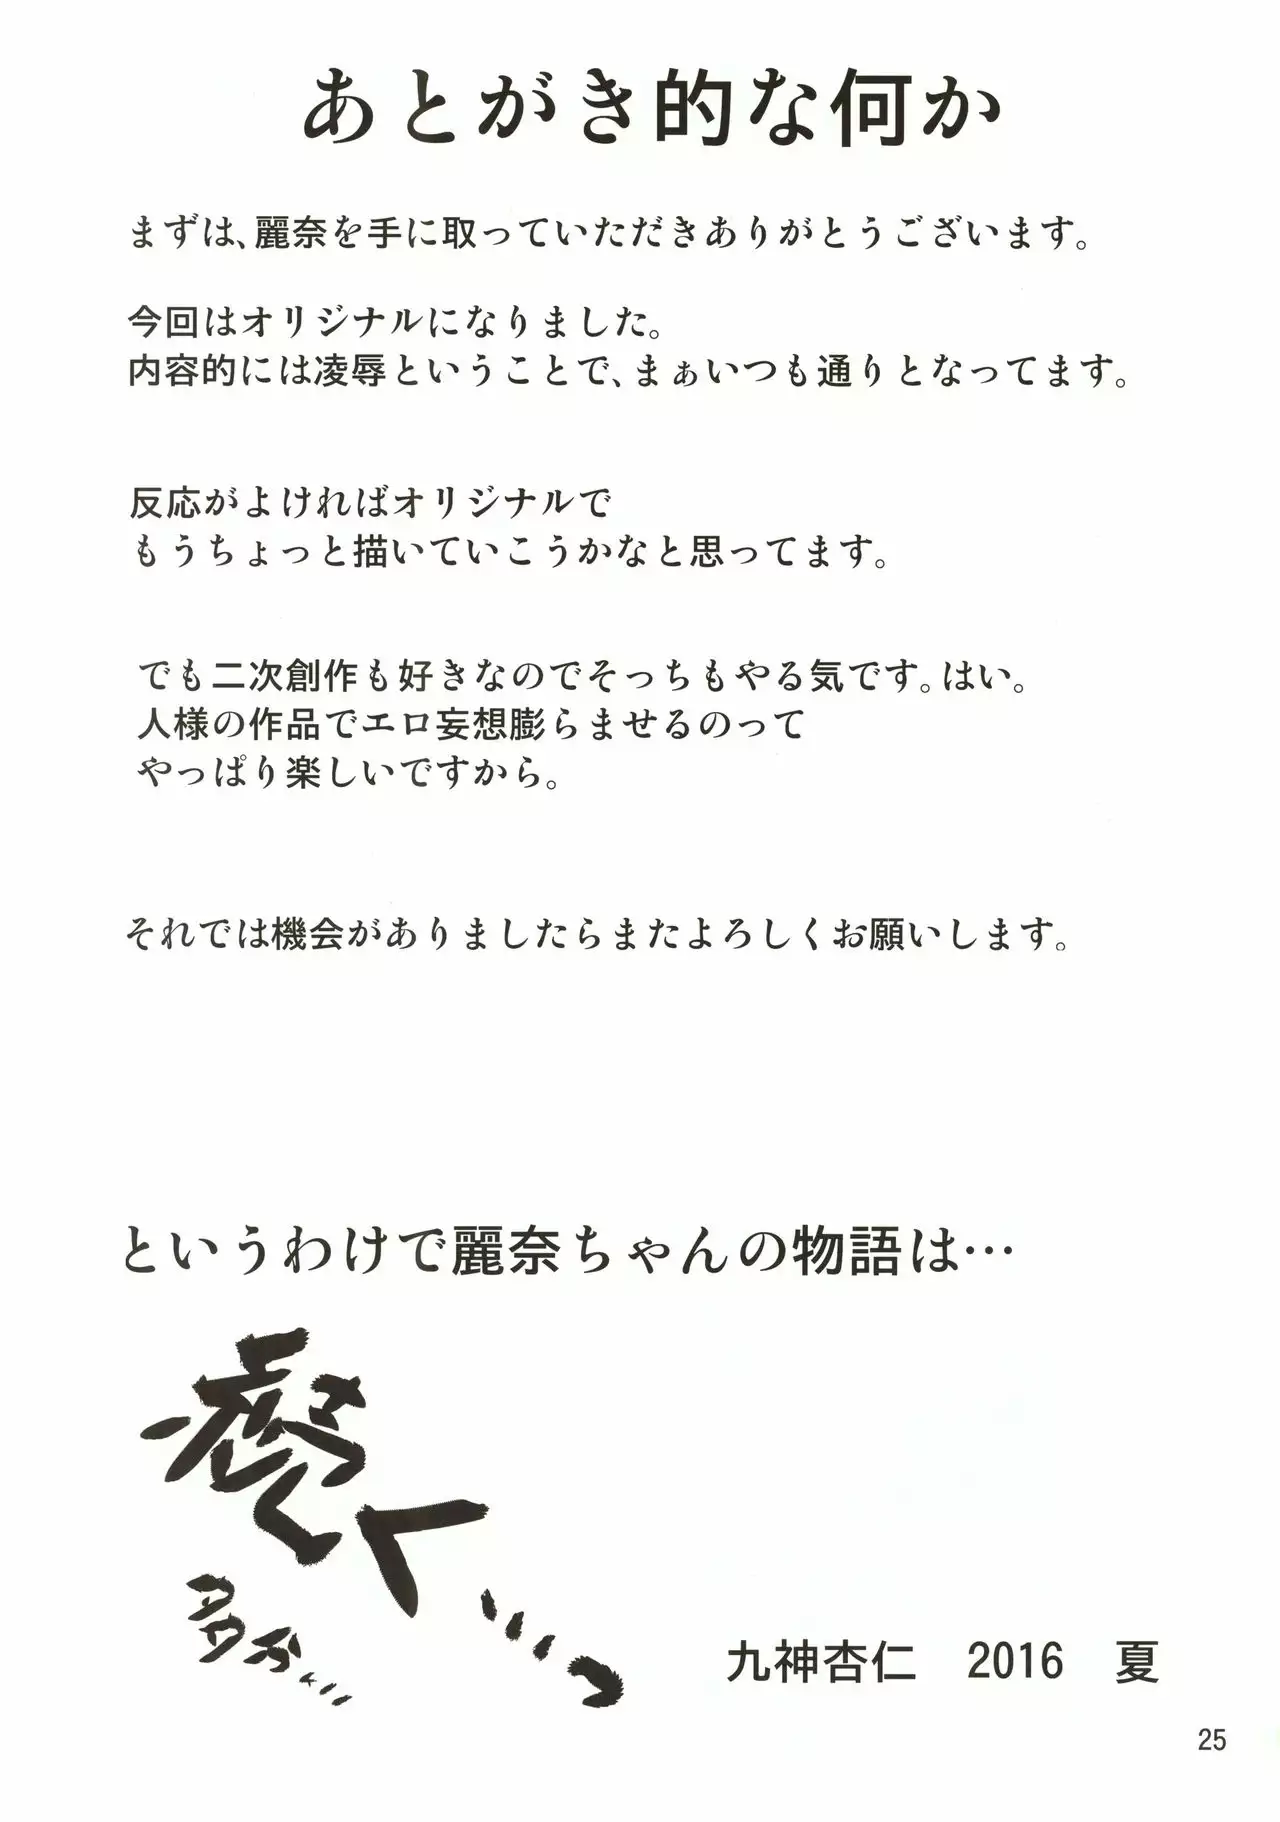 あとがき的な何か
まずは、麗奈を手に取っていただきありがとうございます。
今回はオリジナルになりました。
内容的には凌辱ということで、まぁいつも通りとなってます。
反応がよければオリジナルで
もうちょっと描いていこうかなと思ってます。
でも二次創作も好きなのでそっちもやる気です。はい。
人様の作品でエロ妄想膨らませるのって
やっぱり楽しいですから。
それでは機会がありましたらまたよろしくお願いします。
というわけで麗奈ちゃんの物語は…
続く…っ
多分…
九神杏仁　2016　夏
25